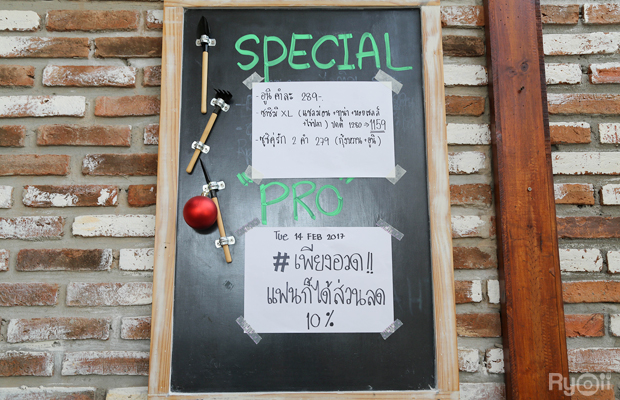 SPECIAL
- อูนิ คำละ 289.-
- ซาชิมิ XL (แซลม่อน + ทูน่า + หอยเชลล์
+ ไข่ปลา) ปกติ 1280 → 1159
- ซูชิคู่รัก 2 คำ 279 (กุ้งหวาน + อูนิ)
"PRO"
Tue 14 FEB 2017
#เพียงอวด!!
แฟนก็ได้ส่วนลด
10%
Ryoii